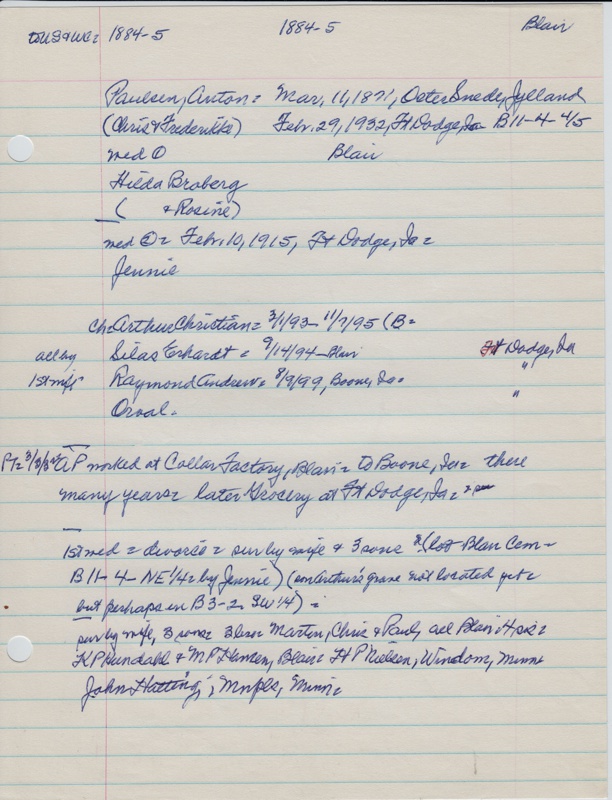 to USA & WC = 1884-5 1884-5 Blair
Paulsen, Anton = Mar. 11, 1871, Oster Snede, Jylland
(Chris & Frederikke) Febr. 29, 1932, Ft Dodge, Ia B11-4-4/5
med ① Blair
Hilda Broberg
( & Rosine)
med ② = Febr. 10, 1915, Ft Dodge, Ia =
Jennie
Ch: Arthur Christian = 3/1/93 - 11/7/95 (B =
all by Silas Erhardt = 9/14/94 - Blair Ft Dodge, Ia
1st wife Raymond Andrew = 8/9/99, Boone, Ia = "
Orval = "
AP worked at Collar Factory, Blair = to Boone, Ia = there
many years = later Grocery at Ft Dodge, Ia =
1st med = divorce = sur by wife & 3 sons (lot Blair Cem -
B11-4-NE 1/4 = by Jennie) (son Arthur's grave not located yet =
but perhaps in B3-2, SW 1/4) =
sur by wife, 3 sons = 3 bro = Martin, Chris & Paul, all Blair; 4 sis =
K P Hundahl & M P Hansen, Blair = H P Nielsen, Windom, Minn
John Hatting, Mnpls, Minn =